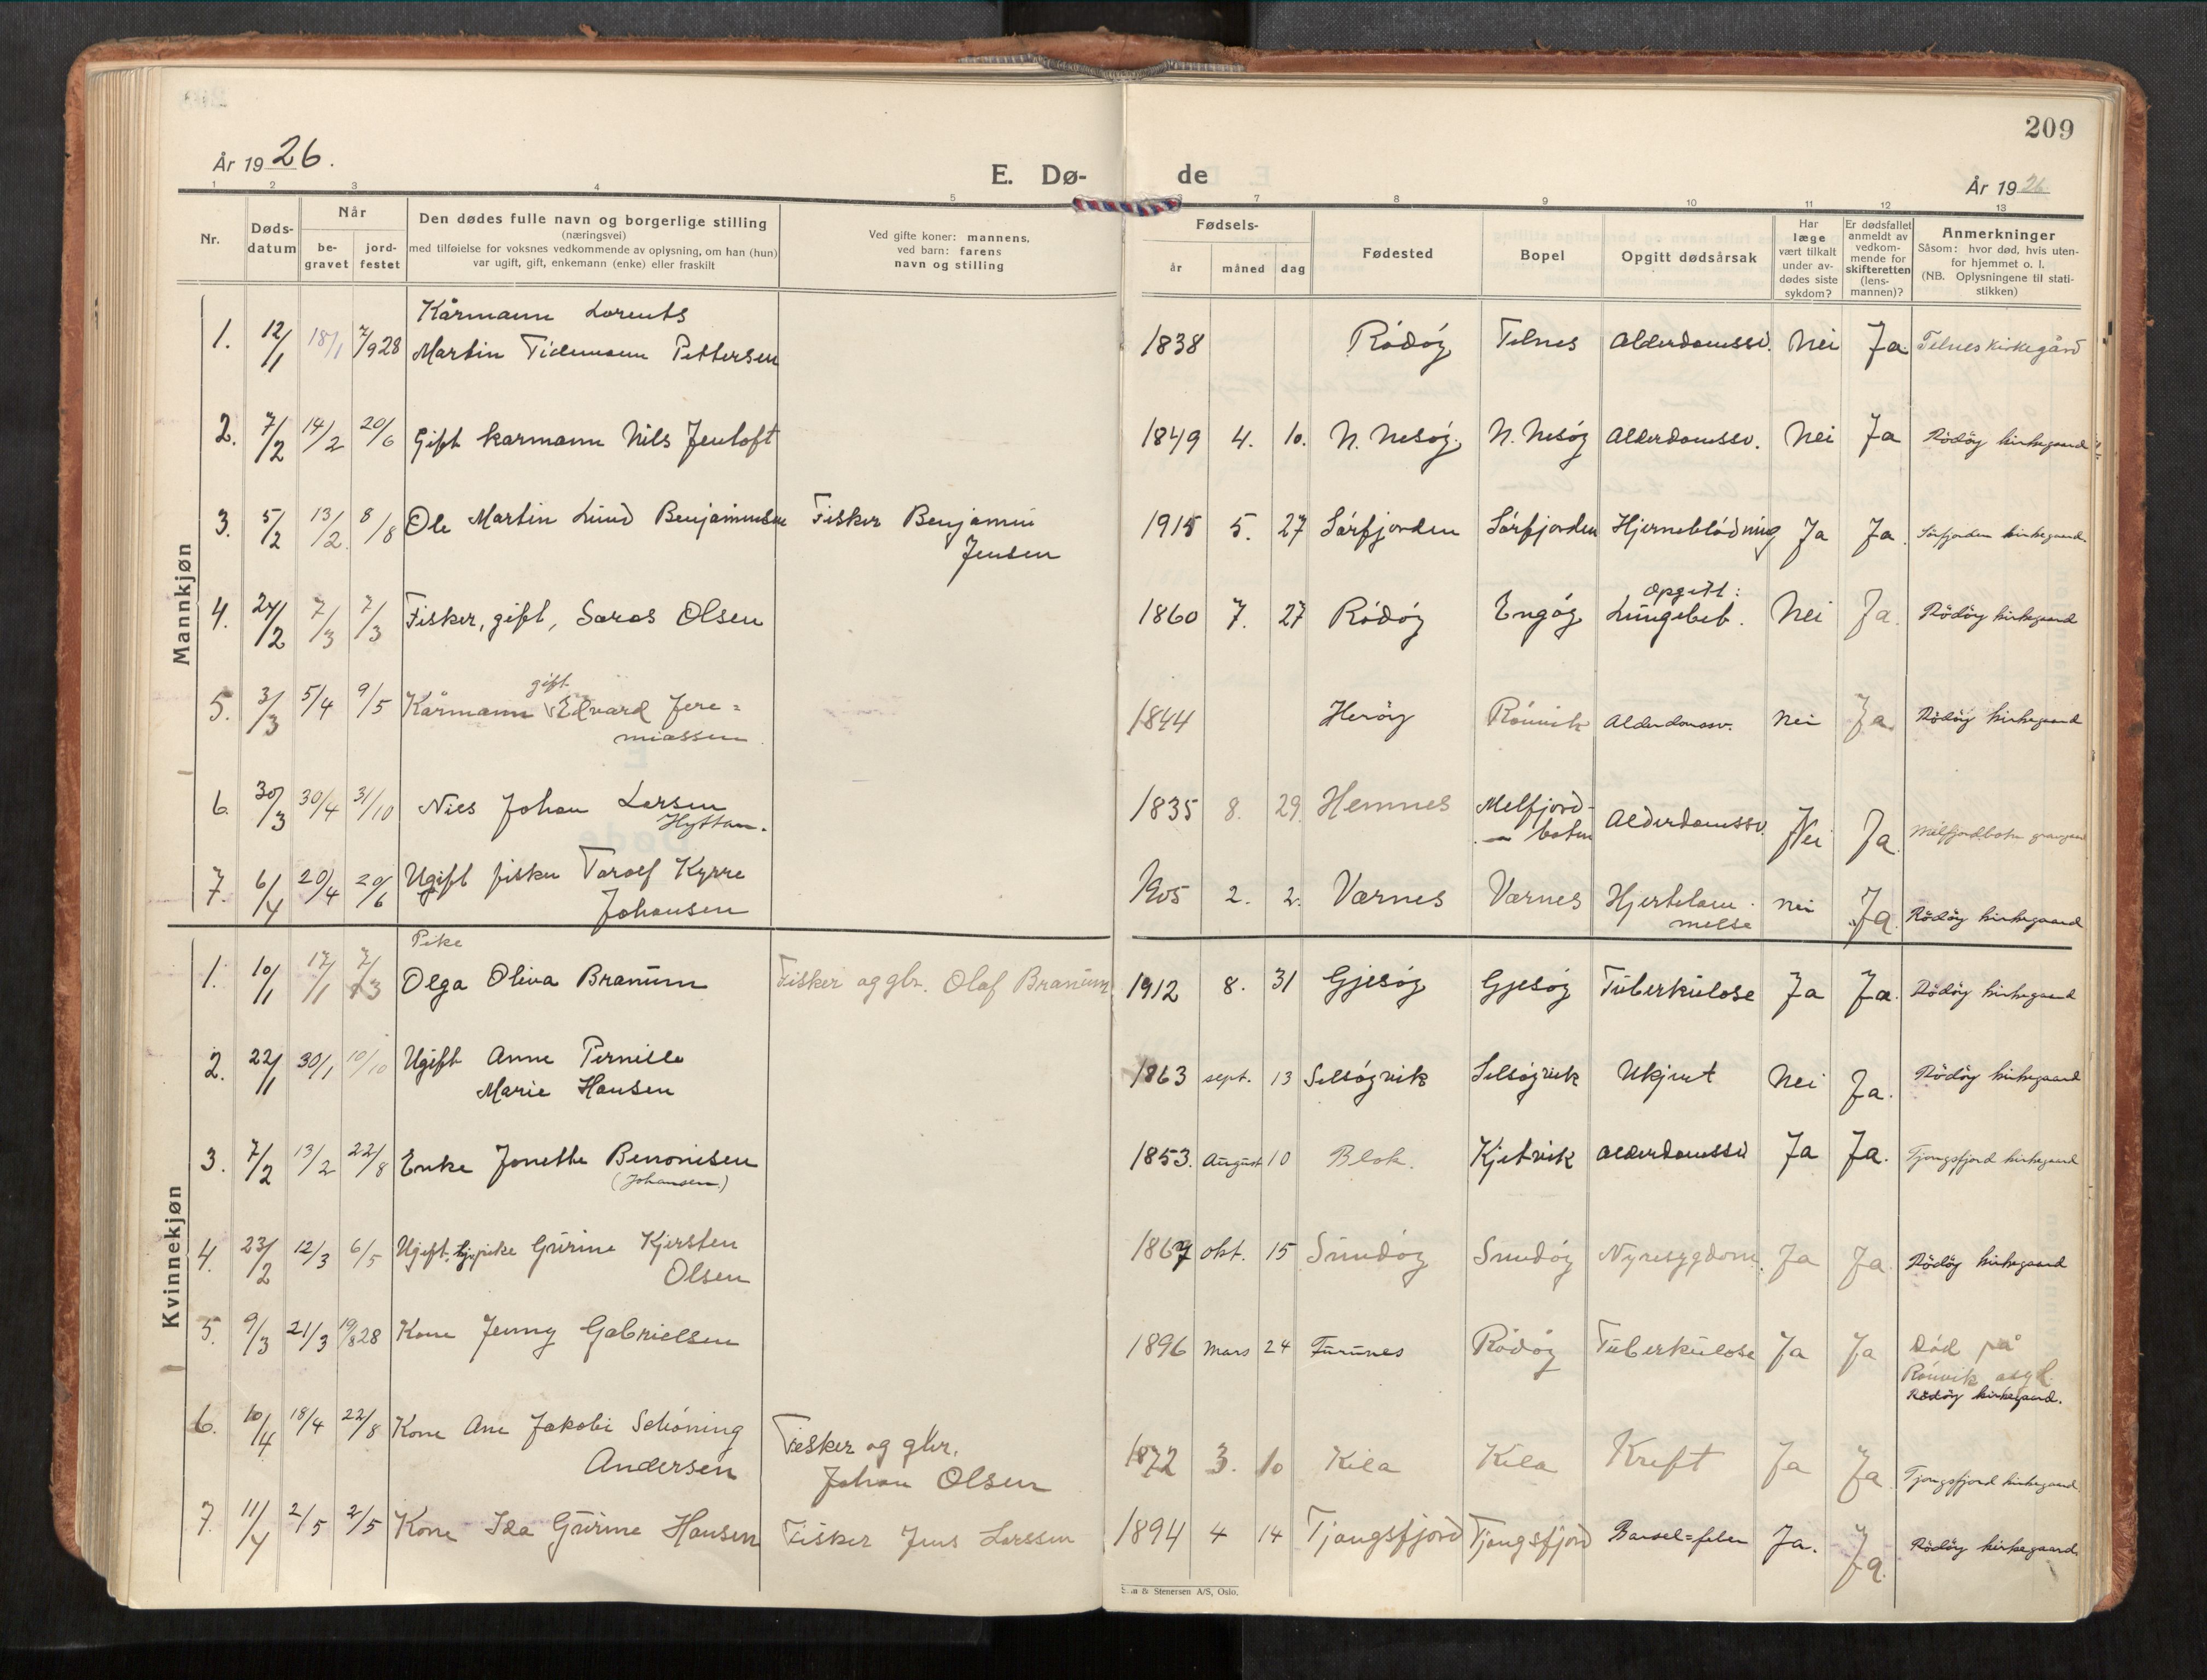 209
År 1926.
E. Dø-
de
År 1926
1 2 3 4 5 7 8 9 10 11 12 13
Nr.
Døds-
datum
Når
be-
gravet
jord-
festet
Den dødes fulle navn og borgerlige stilling
(næringsvei)
med tilføielse for voksnes vedkommende av oplysning, om han (hun)
var ugift, gift, enkemann (enke) eller fraskilt
Ved gifte koner: mannens,
ved barn: farens
navn og stilling
Fødsels-
år
måned
dag
Fødested
Bopel
Opgitt dødsårsak
Har
læge
vært tilkalt
under av-
dødes siste
sykdom?
Er dødsfallet
anmeldt av
vedkom-
mende for
skifteretten
(lens-
mannen)?
Anmerkninger
Såsom: hvor død, hvis uten-
for hjemmet o. l.
(NB. Oplysningene til stati-
stikken)
Mannkjøn
Kårmann Lorents
1. 12/1 18/1 7/9 28 Martin Tidemann Pettersen 1838 Rödöy Telnes Alderdomssv. Nei Ja. Telnes kirkegård
2. 7/2 14/2 20/6 Gift kårmann Nils Jentoft 1849 4. 10. N. Nesöy. N. Nesöy Alderdomssv. Nei Ja Rödöy kirkegaard
3. 5/2 13/2. 8/8 Ole Martin Lund Benjaminsen Fisker Benjamin 1915 5. 27 Sörfjorden Sörfjorden Hjerneblödning Ja Ja. Sörfjorden kirkegaard
Jensen
opgitt:
4. 24/2 7/3 7/3 Fisker, gift, Saras Olsen 1860 7. 27 Rödöy Engöy Lungebet. Nei Ja. Rödöy kirkegaard
gift
5. 3/3 5/4 9/5 Kårmann Edvard Jere= 1844 Heröy Rönvik Alderdomssv. nei Ja. Rödöy kirkegaard
miassen
6. 30/3 30/4 31/10 Nils Johan Larsen 1835 8. 29. Hemnes Melfjord- Alderdomssv. Nei Ja.
Hyttan. botn
7. 6/4 20/4 20/6 Ugift fisker Toralf Kyrre 1905 2. 2. Værnes Værnes Hjertelam- nei Ja. Rödöy kirkegaard
Johansen melse
Kvinnekjøn
Pike
1. 10/1 17/1 7/3 Olga Oliva Branum Fisker og gbr. Olaf Branum 1912 8. 31 Gjesöy Gjesöy Tuberkulose Ja Ja. Rödöy kirkegaard
2. 22/1 30/1 10/10 Ugift Anne Pernille 1863 sept. 13 Selsöyvik Selsöyvik Ukjent Nei Ja. Rödöy kirkegaard
Marie Hansen
3. 7/2 13/2 22/8 Enke Jonette Benonisen 1853. August 10 Blok. Kjetvik alderdomssv Ja Ja. Tjongsfjord kirkegaard
(Johansen)
4. 23/2 12/3 6/5 Ugift, tj.pike Gurine Kjersten 1867 okt. 15 Sundöy Sundöy Nyresygdom. Ja Ja. Rödöy kirkegaard
Olsen
5. 9/3 21/3 19/8 28 Kone Jenny Gabrielsen 1896 Mars 24 Furunes Rödöy Tuberkulose Ja Ja Död på
Rönvik asyl.
Rödöy kirkegaard.
6. 10/4 18/4 22/8 Kone Ane Jakobi Schöning Fisker og gbr. 1872 3. 10 Kila Kila Kreft Ja Ja Tjongsfjord kirkegaard.
Andersen Johan Olsen
7. 11/4 2/5 2/5 Kone Ida Gurine Hansen Fisker Jens Larssen 1894 4 14 Tjongsfjord Tjongsfjord Barsel=feber Ja. Ja. Rödöy kirkegaard.
& Stenersen A/S, Oslo.